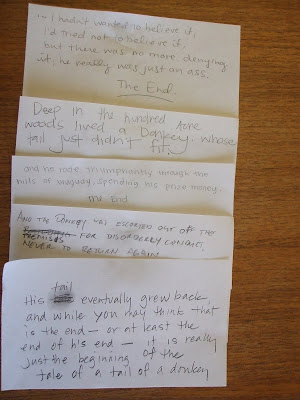 ... I hadn't wanted to believe it,
I'd tried not to believe it,
but there was no more denying
it, he really was just an ass.
The End.
Deep in the hundred acre
woods lived a Donkey. whose
tail just didn't fit.
and he rode triumphantly through the
hills of majudy, spending his prize money...
the end
AND THE DONKEY WAS ESCORTED OUT OF THE
FOR DISORDERLY CONDUCT,
NEVER TO RETURN AGAIN
tail
His eventually grew back,
and while you may think that
is the end — or at least the
end of his end — it is really
just the beginning of the
tale of a tail of a donkey